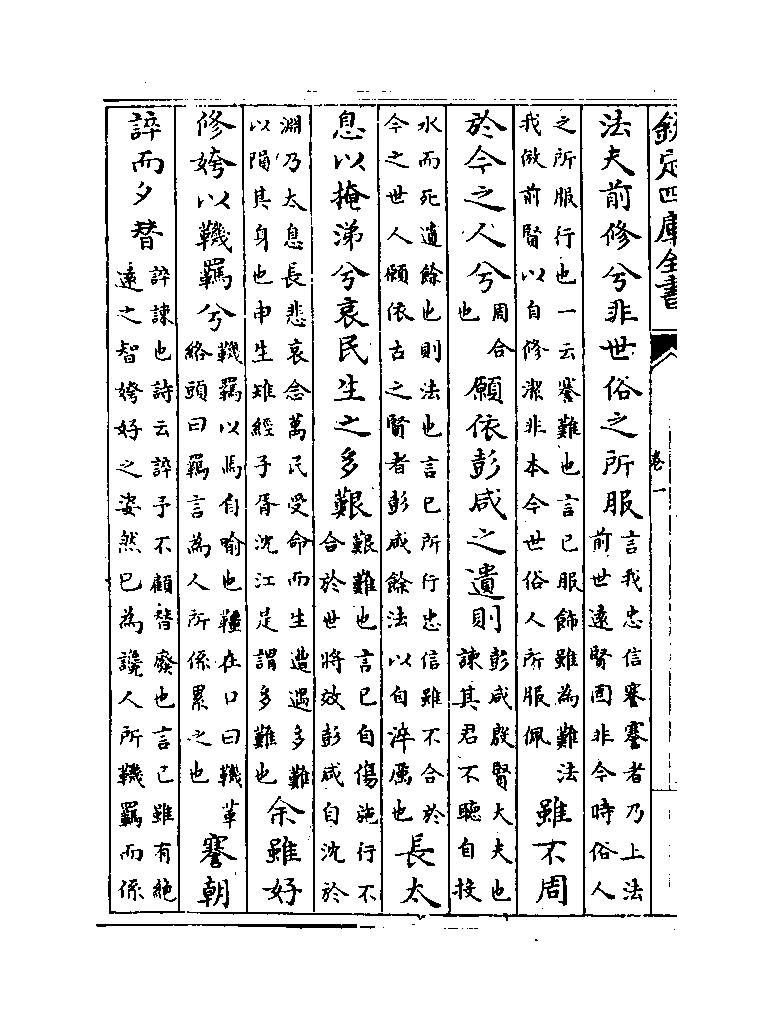 欽定四庫全書
卷一
法夫前修兮非世俗之所服
言我忠信謇謇者乃上法
前世遠賢固非今時俗人
之所服行也一云謇難也言己服飾雖為難法
我倣前賢以自修潔非本今世俗人所服佩
雖不周
於今之人兮
周合
也
願依彭咸之遺則
彭咸殷賢大夫也
諫其君不聽自投
水而死遺餘也則法也言已所行忠信雖不合於
今之世人願依古之賢者彭咸餘法以自淬厲也
長太
息以掩涕兮哀民生之多艱
艱難也言已自傷施行不
合於世將效彭咸自沈於
淵乃太息長悲哀念萬民受命而生遭遇多難
以隕其身也申生雉經子胥沈江是謂多難也
余雖好
修姱以鞿羈兮
鞿羈以馬自喻也韁在口曰鞿革
絡頭曰羈言為人所係累之也
謇朝
誶而夕替
誶諫也詩云誶予不顧替廢也言已雖有絕
遠之智姱好之姿然已為讒人所鞿羈而係